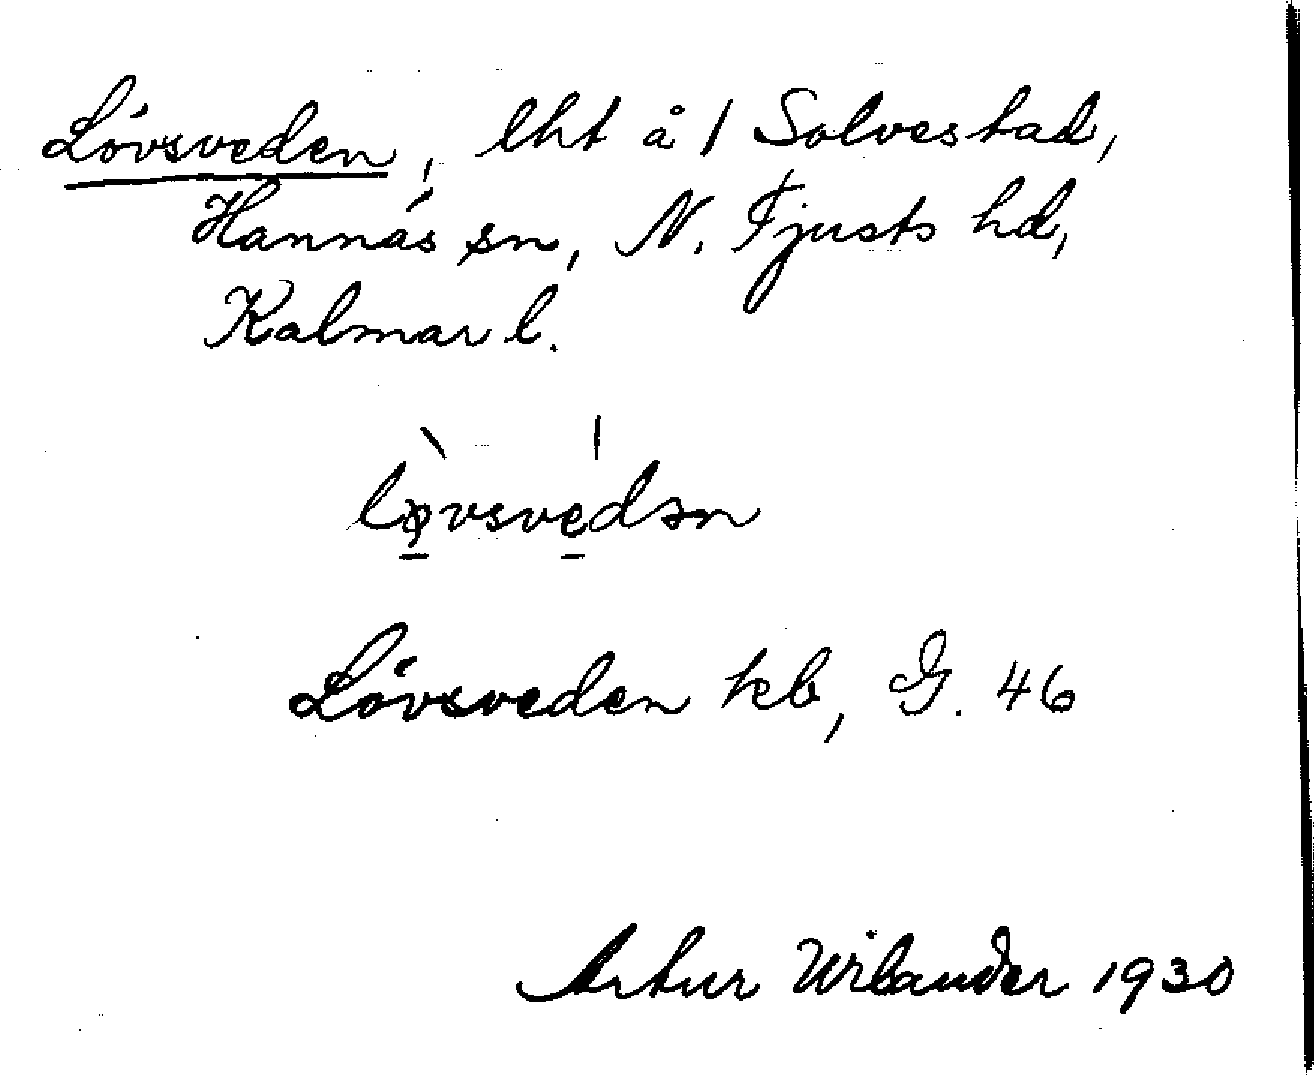 Lövsveden, lht å 1 Solvestad,
Hannäs sn, N. Tjusts hd,
Kalmar l.
lø̱̀vsve̱̍dən
Lövsveden kb, G. 46
Artur Wilander 1930